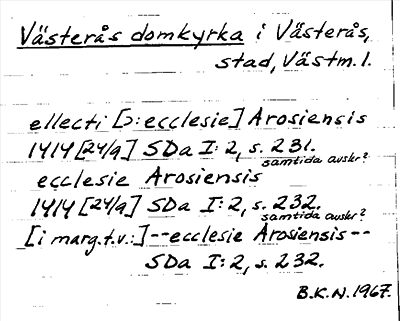 Västerås domkyrka i Västerås,
stad, Västm. l.
ellecti [ɔ: ecclesie] Arosiensis
1414 [24/9] SDa I: 2, s. 231.
samtida avskr?
ecclesie Arosiensis
1414 [24/9] SDa I: 2, s. 232.
samtida avskr?
[i marg. t.v.:] --ecclesie Arosiensis--
SDa I: 2, s. 232.
B.K.N. 1967.